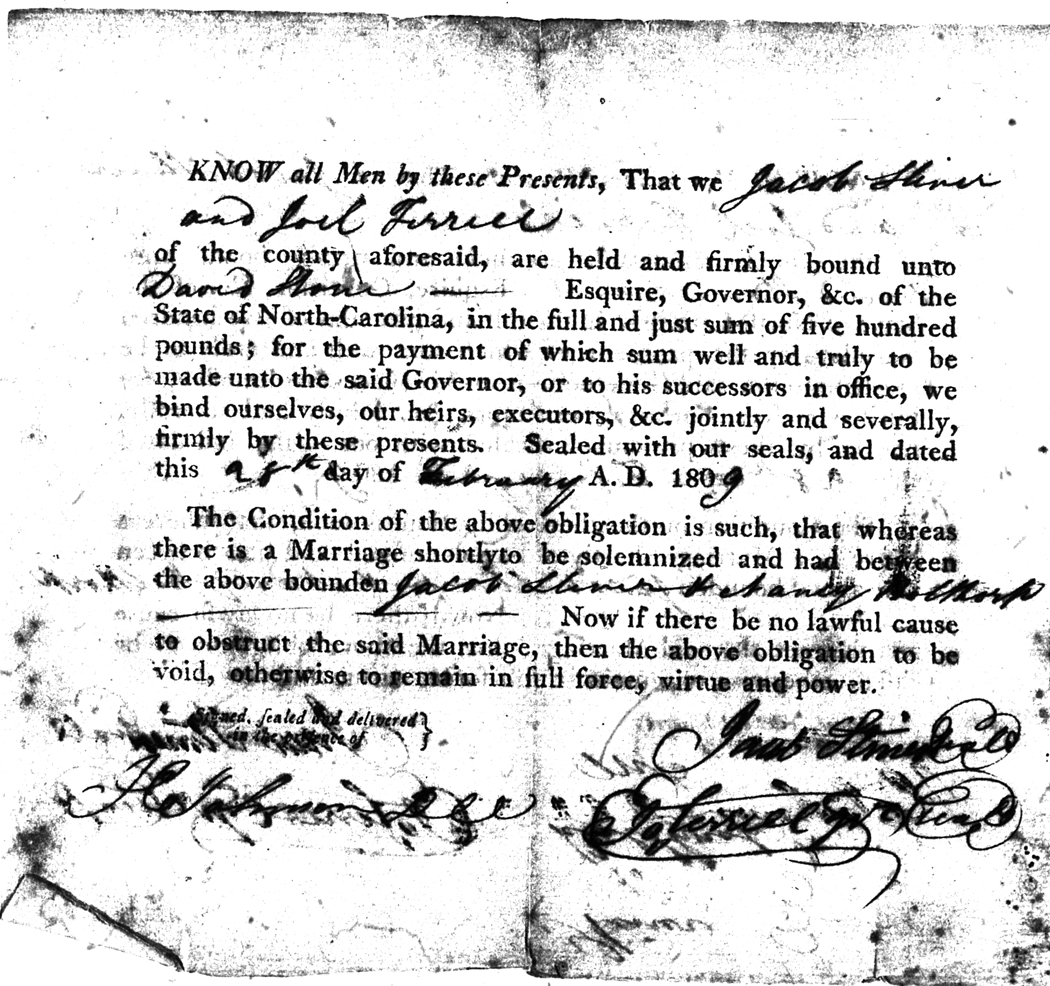 KNOW all Men by these Presents, That we Jacob Sliver
and Joel Ferrell
of the county aforesaid, are held and firmly bound unto
David Stone Esquire, Governor, &c. of the
State of North-Carolina, in the full and just sum of five hundred
pounds; for the payment of which sum well and truly to be
made unto the said Governor, or to his successors in office, we
bind ourselves, our heirs, executors, &c. jointly and severally,
firmly by these presents. Sealed with our seals, and dated
this 28th day of February A. D. 1809
The Condition of the above obligation is such, that whereas
there is a Marriage shortlyto be solemnized and had between
the above bounden Jacob Sliver & Nancy
Now if there be no lawful cause
to obstruct the said Marriage, then the above obligation to be
void, otherwise to remain in full force, virtue and power.
Signed, sealed and delivered }
in the presence of
Jacob
Johnson